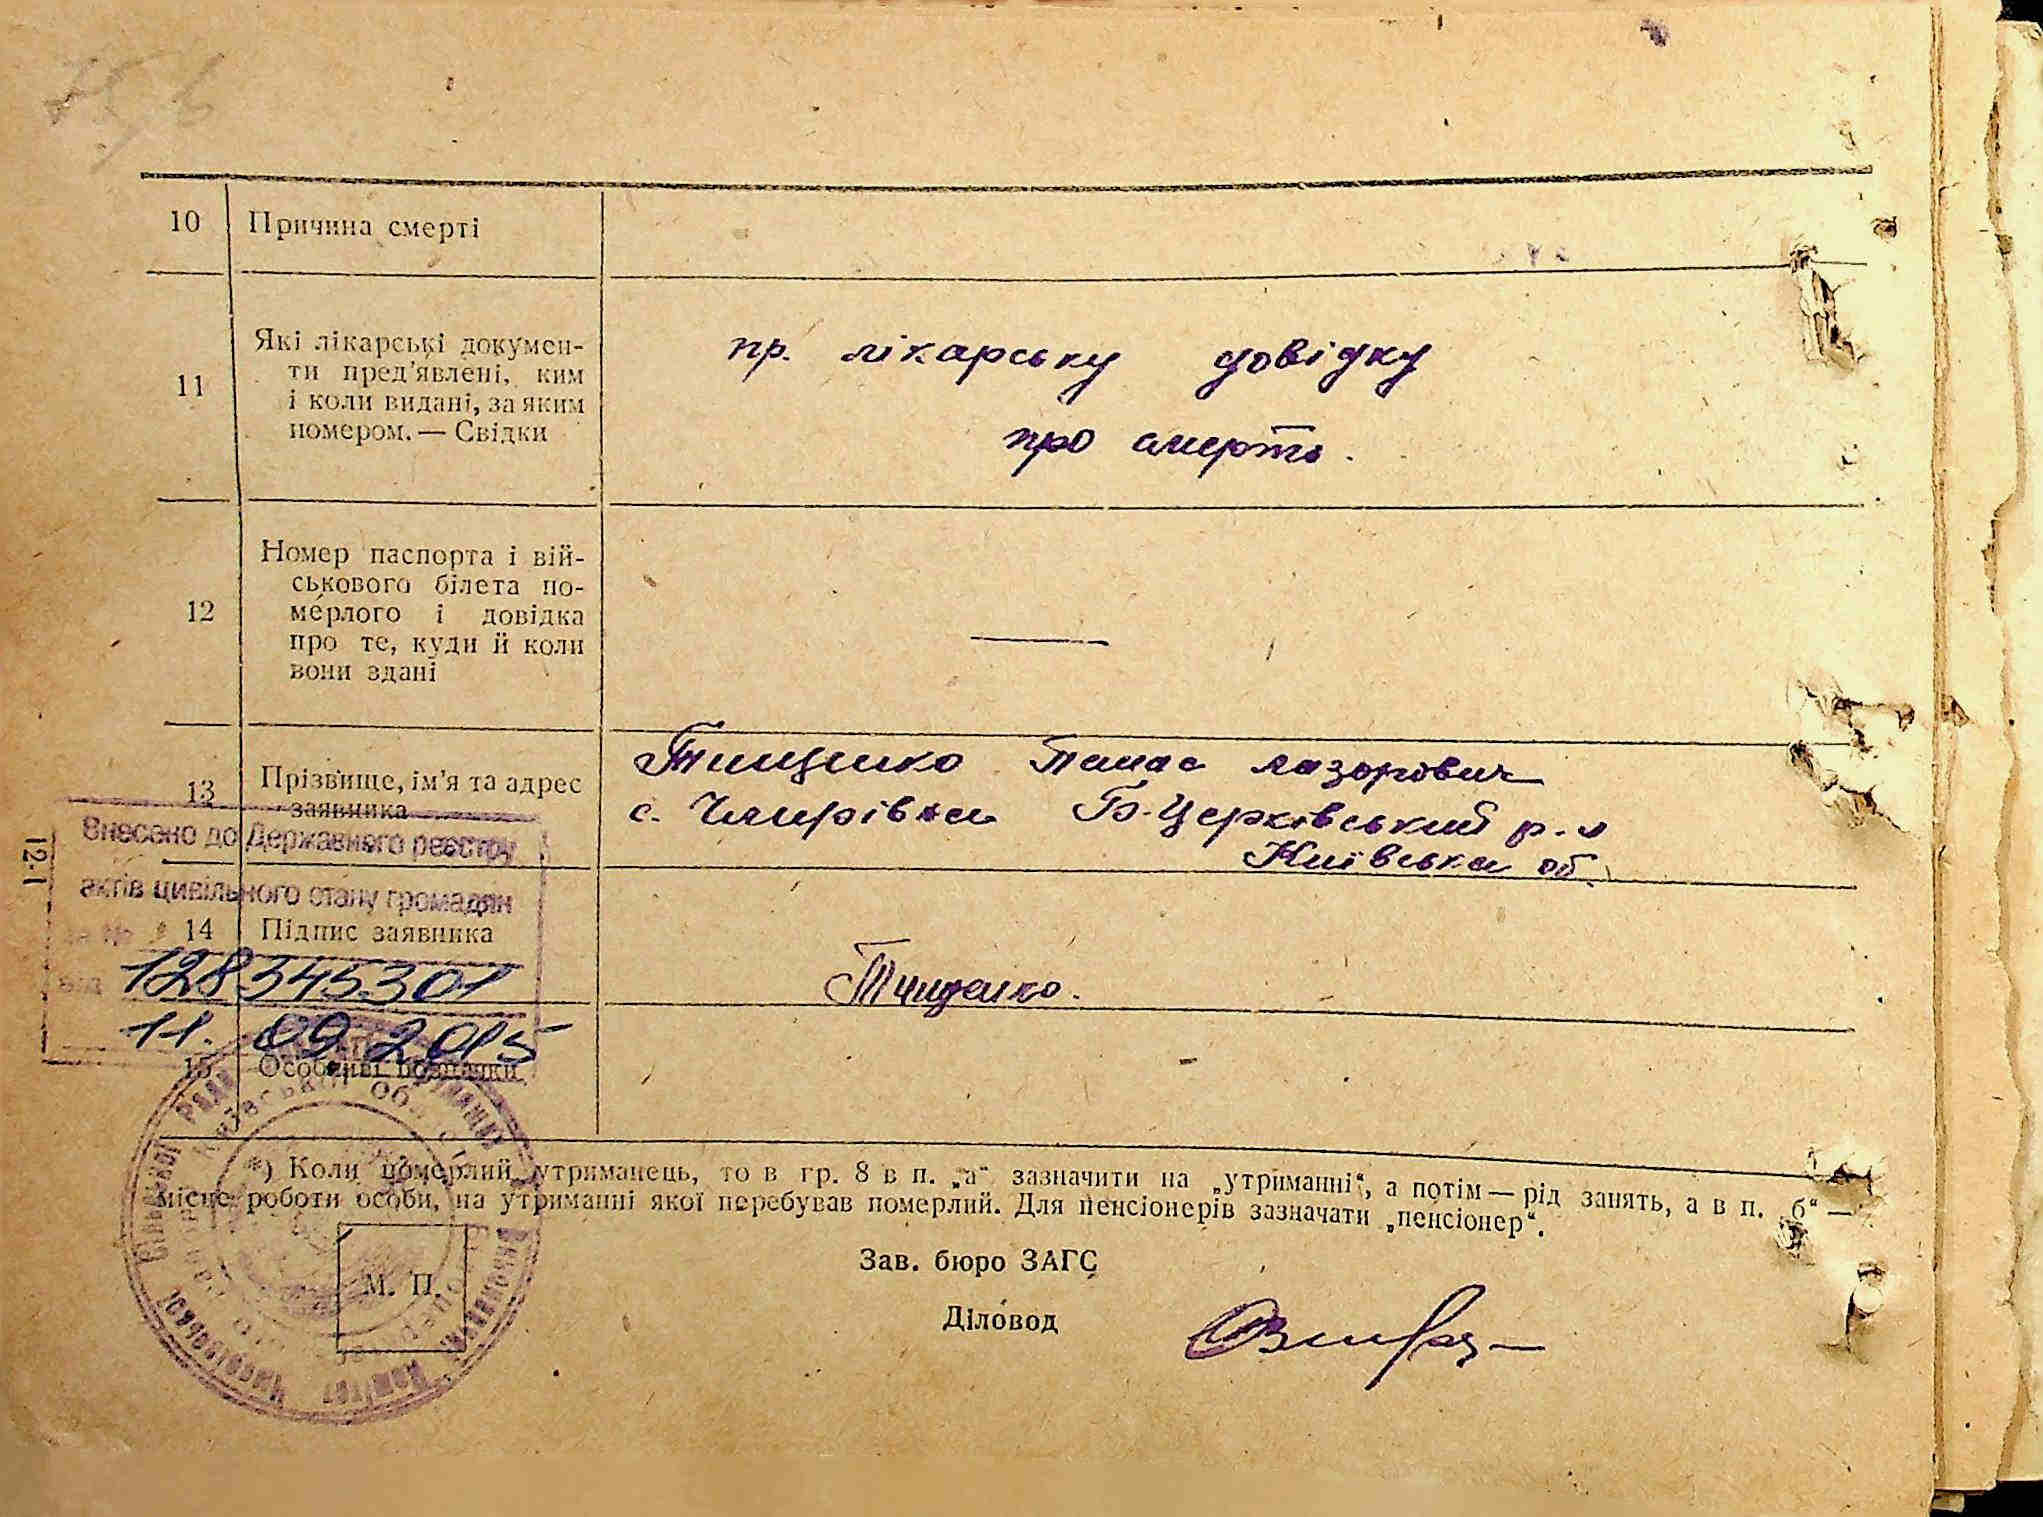 10 Причина смерті
11 Які лікарські докумен-
ти пред'явлені, ким
і коли видані, за яким
номером. — Свідки
пр. лікарську довідку
про смерть.
12 Номер паспорта і вій-
ськового білета по-
мерлого і довідка
про те, куди й коли
вони здані
—
13 Прізвище, ім'я та адрес
заявника
Тищенко Панас Лазорович
с. Чмирівка Б-Церківський р-н
Київська об.
Внесено до Державного реєстру
актів цивільного стану громадян
за №
128345301
11.09.2015
14 Підпис заявника
Тищенко.
15 Особливі позначки
12-1
*) Коли померлий утриманець, то в гр. 8 в п. „а“ зазначити на „утриманні“, а потім — рід занять, а в п. „б“ —
місце роботи особи, на утриманні якої перебував померлий. Для пенсіонерів зазначати „пенсіонер“.
Зав. бюро ЗАГС
М. П.
Діловод